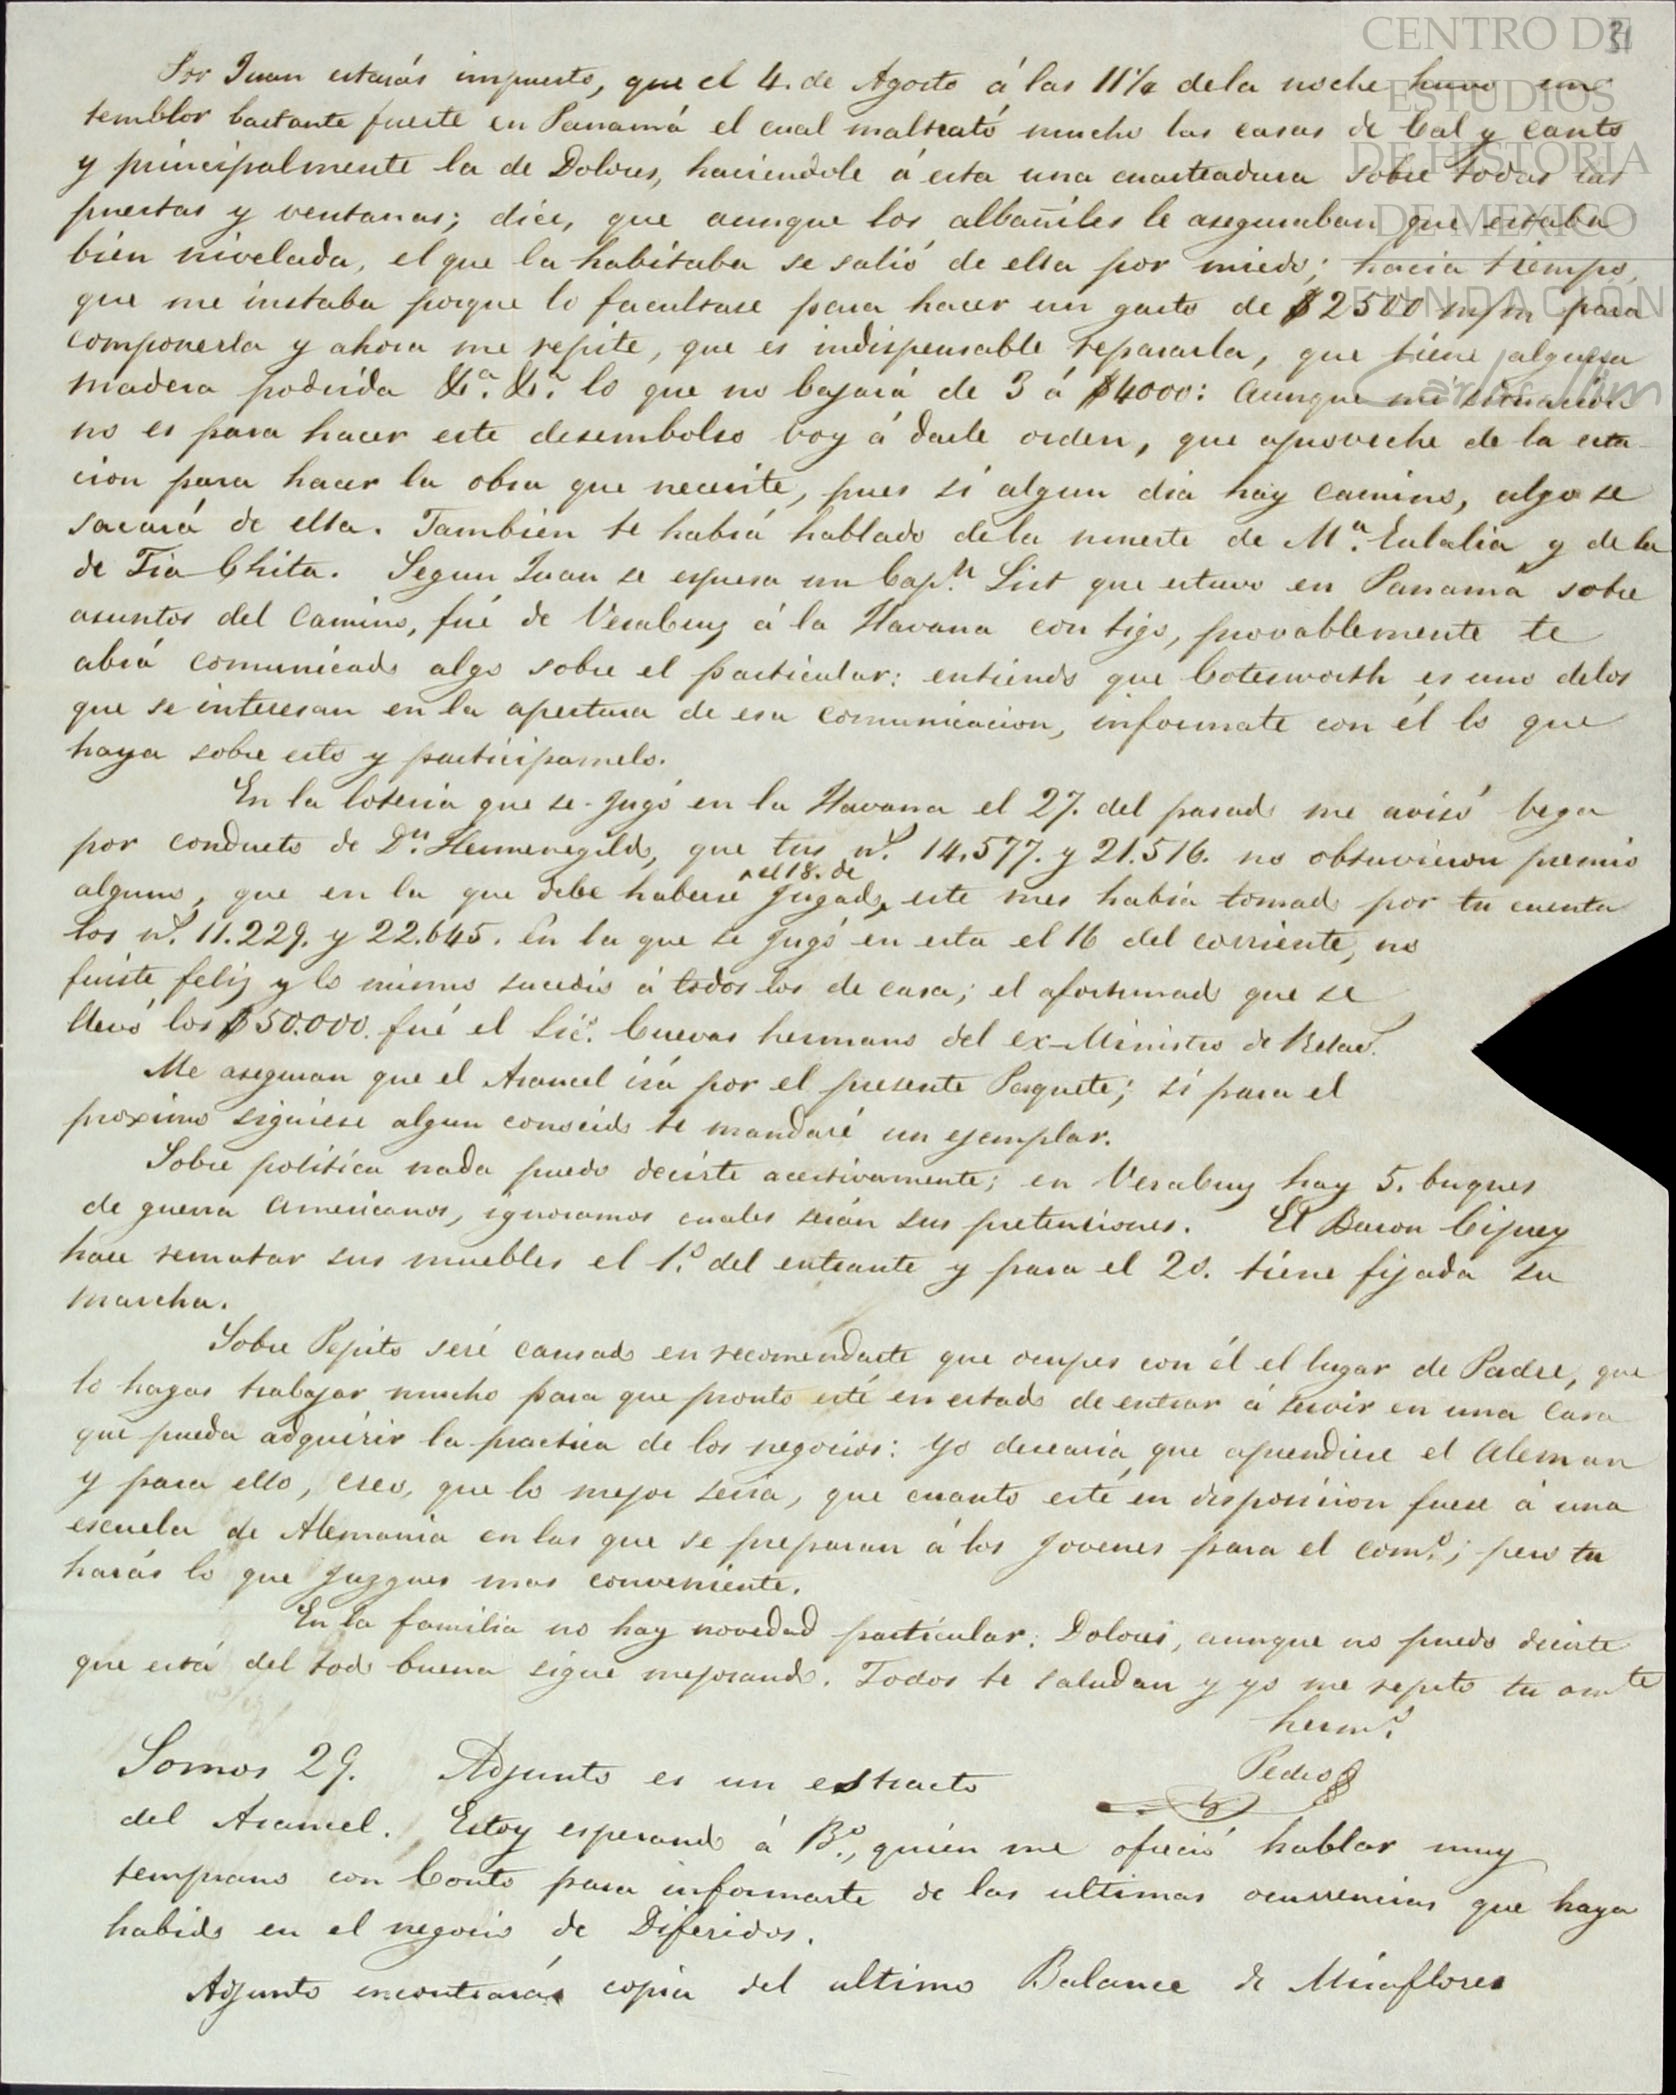 31
CENTRO DE
ESTUDIOS
DE HISTORIA
DE MEXICO
FUNDACIÓN
Carlos Slim
Por Juan estarás impuesto, que el 4. de Agosto á las 11½ dela noche huvo un
temblor bastante fuerte en Panamá el cual maltrató mucho las casas de Cal y Canto
y principalmente la de Dolores, haciendole á esta una cuarteadura sobre todas las
puertas y ventanas; dice, que aunque los albañiles le aseguraban que estaba
bien nivelada, el que la habitaba se salió de ella por miedo; hacia tiempo,
que me instaba porque lo facultase para hacer un gasto de $2500 m/m para
componerla y ahora me repite, que es indispensable repararla, que tiene alguna
madera podrida &.ª &.ª lo que no bajará de 3 á $4000: aunque mi situacion
no es para hacer este desembolso voy á darle orden, que aproveche de la esta-
cion para hacer la obra que necesite, pues si algun dia hay camino, algo se
sacará de ella. Tambien te habrá hablado dela muerte de M.ª Eulalia y dela
de Tia Chita. Segun Juan se espera un Cap.n List que estuvo en Panamá sobre
asuntos del Camino, fué de Veracruz á la Havana contigo, provablemente te
abrá comunicado algo sobre el particular: entiendo que Cotesworth es uno delos
que se interesan en la apertura de esa comunicacion, informate con él lo que
haya sobre esto y participamelo.
En la loteria que se jugó en la Havana el 27. del pasado me avisó Vega
por conducto de Dn. Hermenegildo, que tus n.s 14.577. y 21.516. no obtuvieron premio
alguno, que en la que debe haberse jugado el 18. de este mes habia tomado por tu cuenta
los n.s 11.229. y 22.645. En la que se jugó en esta el 16 del corriente, no
fuiste feliz y lo mismo sucedió á todos los de casa; el afortunado que se
llevó los $50.000. fué el Lic.o Cuevas hermano del ex-Ministro de Relac.s
Me aseguran que el Arancel irá por el presente Paquete; si para el
proximo siguiese algun conocido te mandaré un ejemplar.
Sobre politica nada puedo decirte acertivamente; en Veracruz hay 5. buques
de guerra Americanos, ignoramos cuales serán sus pretensiones. El Baron Ciprey
hace rematar sus muebles el 1.º del entrante y para el 20. tiene fijada su
marcha.
Sobre Pepito seré cansado en recomendarte que ocupes con él el lugar de Padre, que
lo hagas trabajar mucho para que pronto esté en estado de entrar á servir en una Casa
que pueda adquirir la practica de los negocios: yo desearia, que aprendiese el Aleman
y para ello, creo, que lo mejor seria, que cuanto esté en disposicion fuese á una
escuela de Alemania en las que se preparan á los jovenes para el com.o; pero tu
harás lo que juzgues mas conveniente.
En la familia no hay novedad particular: Dolores, aunque no puedo decirte
que está del todo buena sigue mejorando. Todos te saludan y yo me repito tu am.te
herm.o
Pedro
Somos 29. Adjunto es un estracto
del Arancel. Estoy esperando á B.o, quién me ofreció hablar muy
temprano con Couto para informarte de las ultimas ocurrencias que haya
habido en el negocio de Diferidos.
Adjunto encontrarás copia del ultimo Balance de Miraflores